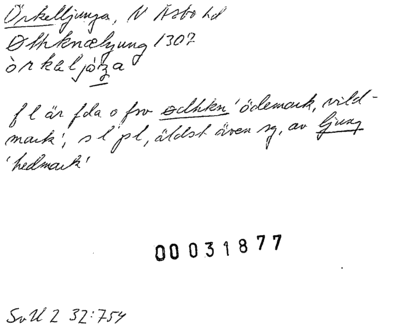 Örkelljunga, N Åsbo hd
Othknælyung 1307
òrkaljóza
f l är fda o fsv ødhkn 'ödemark, vild-
mark', s l pl, äldst även sg, av ljung
'hedmark'
00031877
SvU 2 32:754